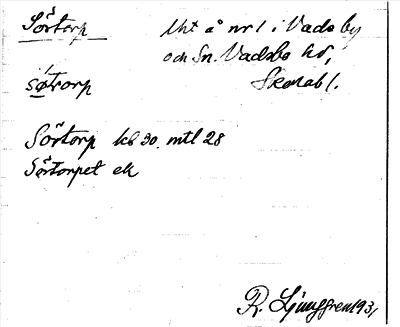 Sörtorp
Uht å nr 1 i Vads by
och Sn. Vadsbo hd,
Skarab l.
søtrorp
Sörtorp kb 30. mtl 28
Sörtorpet ek
R. Ljunggren 193,